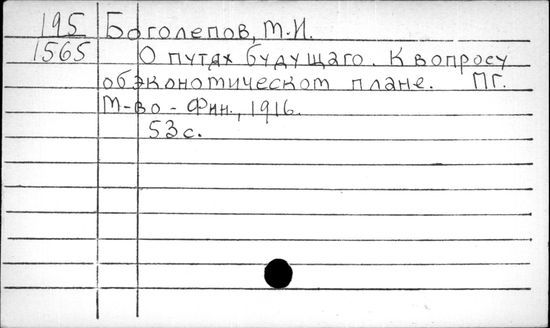 195 Боголепов, М.И.
1565 О путях будущаго. К вопросу
об экономическом плане. ПГ.
М-во - Фин., 1916.
53 с.